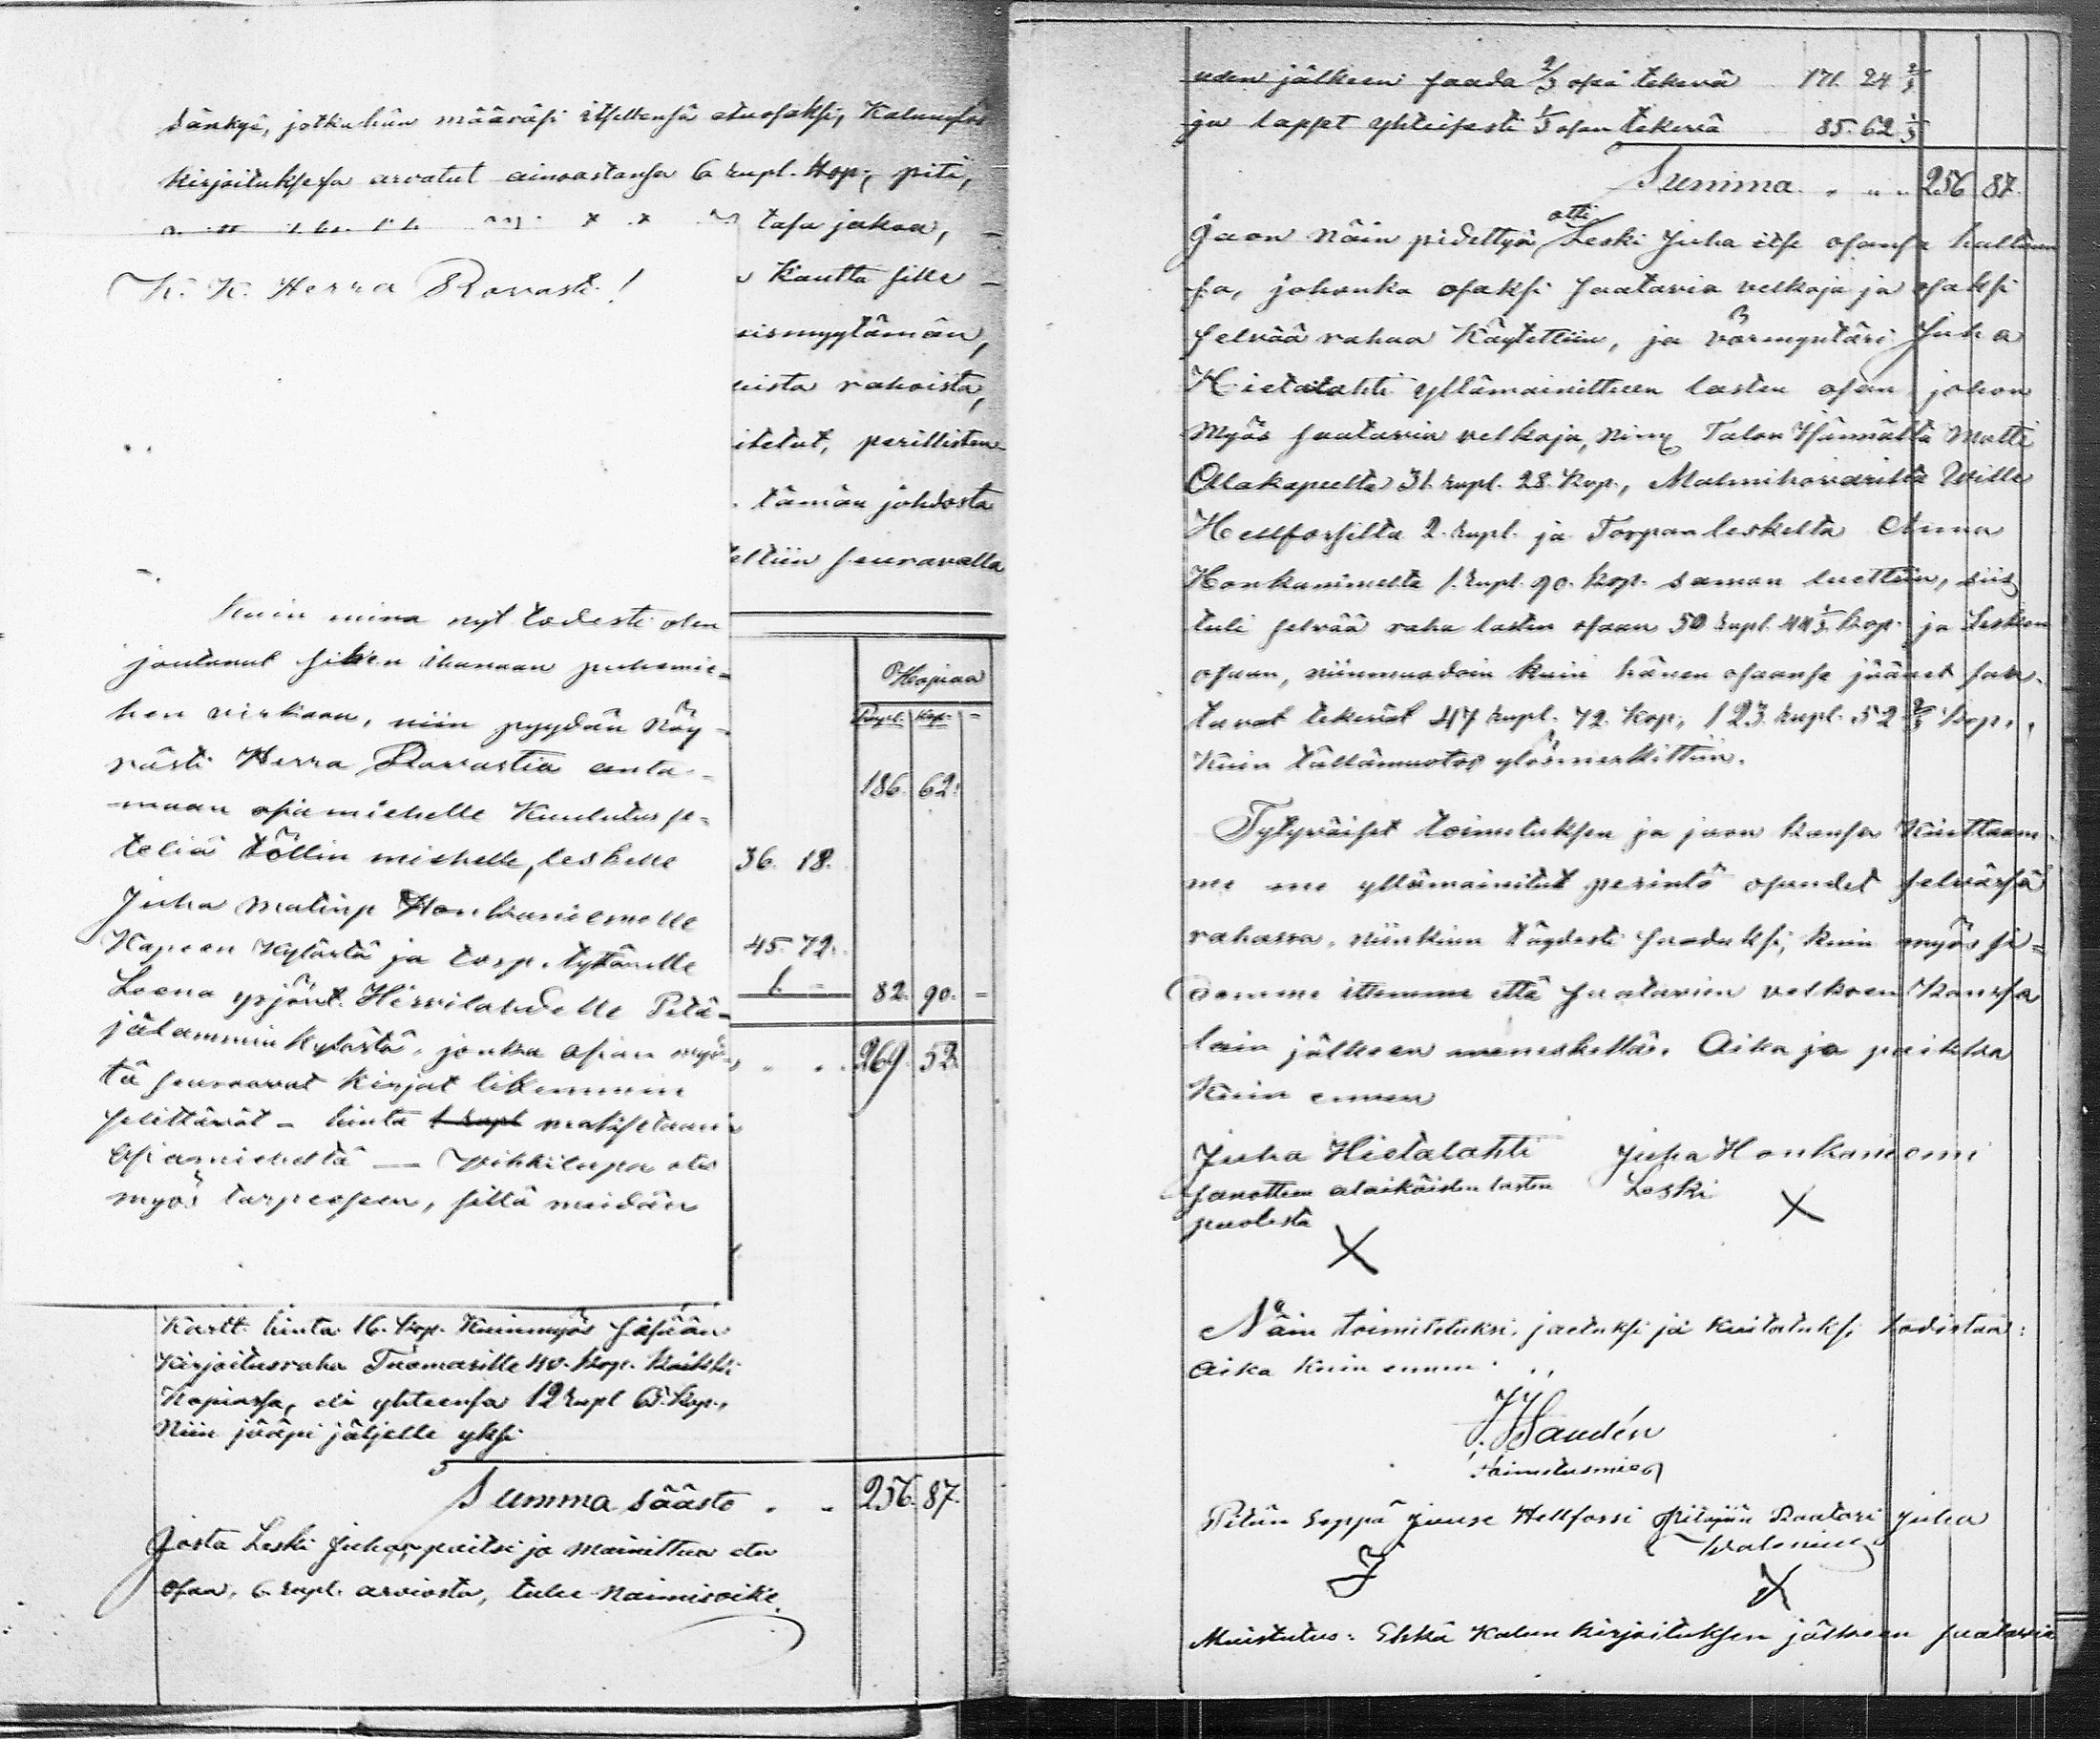 sänkyä, jotka hän määräsi itsellensä etuosaksi, Kalunylös
kirjoituksessa arvatut ainoastansa 6 rupl. kop:, piti,
tasa jakoa,
K. K. Herra Rovasti!
kautta sille
rahoista,
perillisten
tämän johdosta
seuravalla
Kuin minä nyt todesti olen
joutunut siihen ihanaan puhemie-
hen virkaan, niin pyydän nöy-
rästi Herra Rovastia anta-
maan asiamiehelle Kuulutusse-
teliä töllin miehelle, leskelle
Juha Matinp Honkaniemelle
Kapeen kylästä ja torp. tyttärelle
Leena yrjönt. Hirvilahdelle Petä-
jälammin kylästä, jonka asian myö-
tä seuraavat kirjat likemmin
selittävät - hinta 1 rupl maksetaan
asiamieheltä — Vihkilupa olis
myös tarpeesen, sillä meidän
Kopiaa
Rupl. Kop.
186. 62.
36. 18.
45. 72.
1. = 82. 90. =
269. 52.
Kartt. hinta 16. kop. Kuinmyös sisään
kirjoitusraha Tuomarille 40. kop. Kaikki
Kopiassa, eli yhteensä 12 rupl 65. kop.,
Niin jääpi jäljelle yksi
Summa säästö . . 256. 87.
Josta Leski Juha, paitsi jo mainittua etu
osaa, 6. rupl. arviosta, tulee naimisoike
uden jälkeen saada 2/3 osa tekevä 171. 24 2/3
ja lapset yhteisesti 1/3 osan tekevä 85. 62 1/3
Summa . . . 256 87.
Jaon näin pidettyä otti Leski Juha itse osansa haltuun
sa, johonka osaksi saatavia velkoja ja osaksi
selvää rahaa käytettiin, ja vörmyntäri Juha
Hietalahti yllämainittuen lasten osan, johon
myös saatavia velkoja, nimx Talon Isännältä Matti
Alakapeelta 31. rupl. 28. kop., Malmihoviarilta Wille
Hellforssilta 2. rupl. ja Torpan leskeltä Anna
Honkaniemeltä 1. rupl. 90. kop. saman luettiin, siis
tuli selvää raha lasten osaan 50 rupl. 44 1/3 kop. ja Lesken
osaan, niinmuodoin kuin hänen osaansa jäänet saa-
tavat tekevät 47 rupl. 72. kop., 123. rupl. 52 2/3 kop.,
Kuin tällämuotoo ylösmerkittiin.
Tytyväiset toimituksen ja jaon kansa kuittaam-
me me yllämainitut perintö osuudet selvässä
rahassa, niinkuin täydesti saaduksi, kuin myös si-
domme ittemme että saatavien velkoen kanssa
lain jälkeen meneskellä. Aika ja paikka
Kuin ennen
Juha Hietalahti Juha Honkaniemi
sanottuen alaikäisten lasten Leski X
puolesta
X
Näin toimitetuksi, jaetuksi ja kuitatuksi todistaa:
Aika kuin ennen
Sandén
Toimitusmies
Pitän Seppä Juuse Hellforssi Pitäjän Raatari Juha
Walenius
J X
Muistutus: Ehkä Kalun kirjoituksen jälkeen saatavia